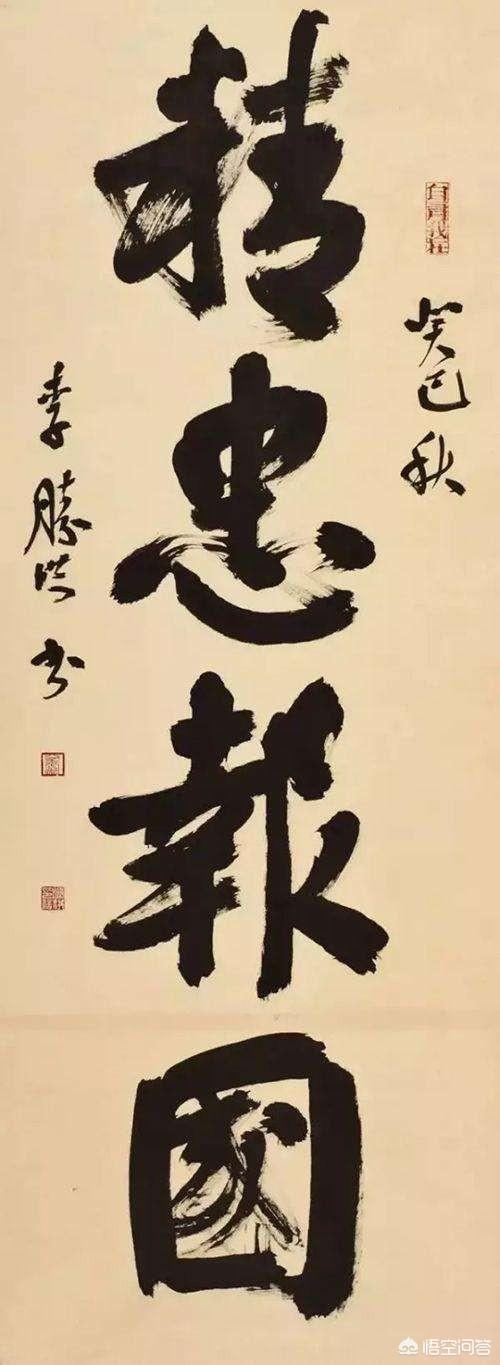 癸巳秋
精忠報國
李勝洪书
悟空问答